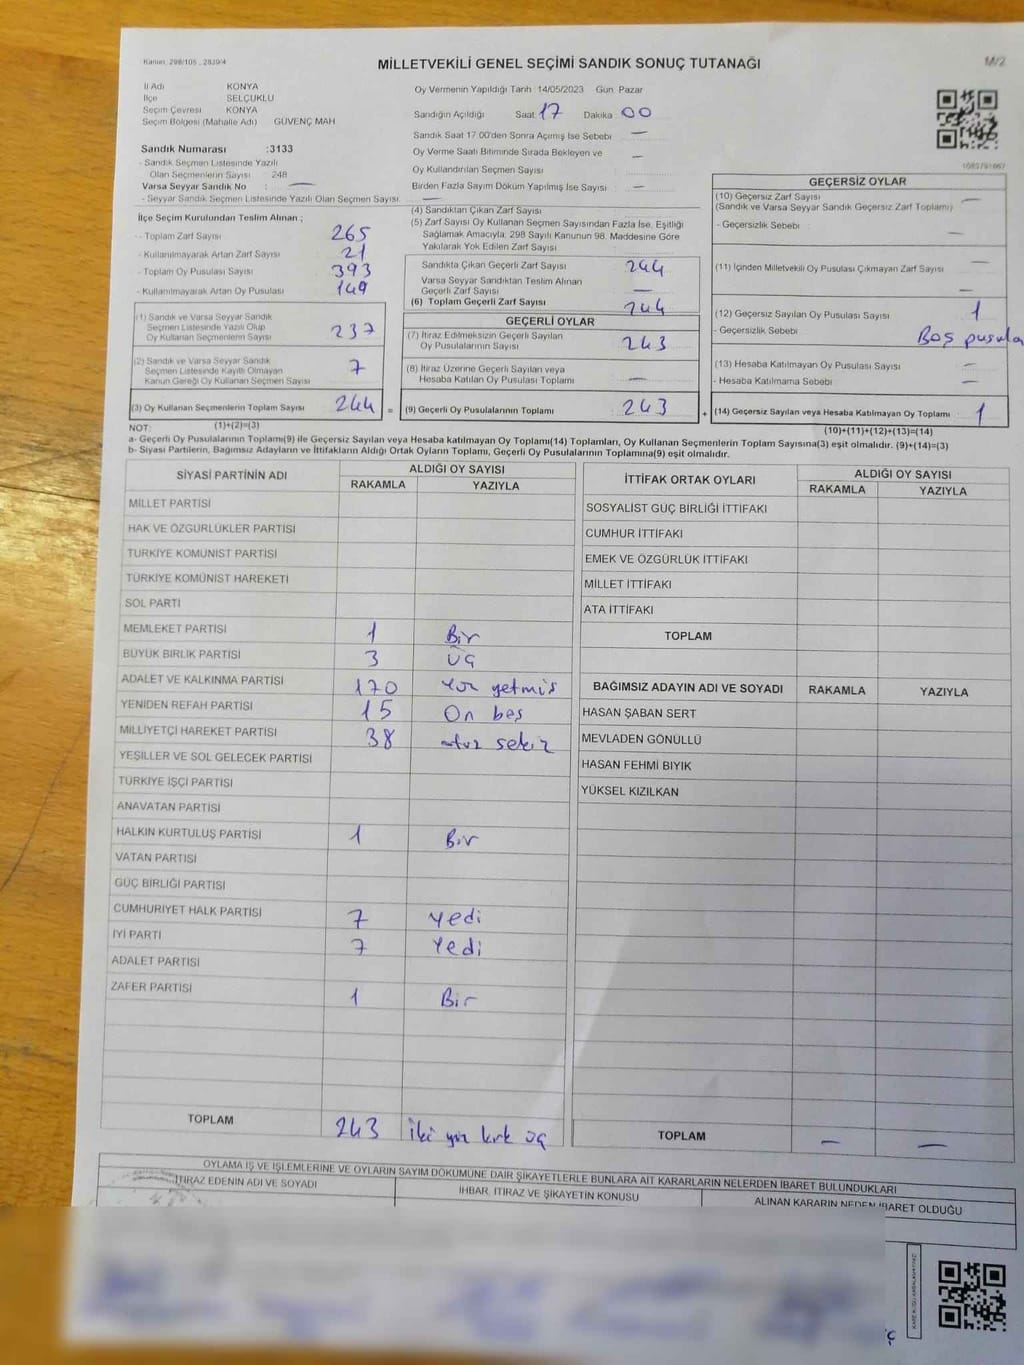 Kanun, 298/105 , 2839/4
MİLLETVEKİLİ GENEL SEÇİMİ SANDIK SONUÇ TUTANAĞI
M/2
İl Adı KONYA
İlçe SELÇUKLU
Seçim Çevresi KONYA
Seçim Bölgesi (Mahalle Adı) GÜVENÇ MAH
Oy Vermenin Yapıldığı Tarih 14/05/2023 Gün Pazar
Sandığın Açıldığı Saat 17 Dakika 00
Sandık Saat 17.00'den Sonra Açılmış İse Sebebi —
Oy Verme Saati Bitiminde Sırada Bekleyen ve
Oy Kullandırılan Seçmen Sayısı —
Birden Fazla Sayım Döküm Yapılmış İse Sayısı —
1085791667
Sandık Numarası :3133
- Sandık Seçmen Listesinde Yazılı
Olan Seçmenlerin Sayısı 248
Varsa Seyyar Sandık No : —
- Seyyar Sandık Seçmen Listesinde Yazılı Olan Seçmen Sayısı —
İlçe Seçim Kurulundan Teslim Alınan ;
- Toplam Zarf Sayısı 265
- Kullanılmayarak Artan Zarf Sayısı 21
- Toplam Oy Pusulası Sayısı 393
- Kullanılmayarak Artan Oy Pusulası 149
(1) Sandık ve Varsa Seyyar Sandık
Seçmen Listesinde Yazılı Olup
Oy Kullanan Seçmenlerin Sayısı 237
(2) Sandık ve Varsa Seyyar Sandık
Seçmen Listesinde Kayıtlı Olmayan
Kanun Gereği Oy Kullanan Seçmen Sayısı 7
(3) Oy Kullanan Seçmenlerin Toplam Sayısı 244 =
(4) Sandıktan Çıkan Zarf Sayısı
(5) Zarf Sayısı Oy Kullanan Seçmen Sayısından Fazla İse, Eşitliği
Sağlamak Amacıyla, 298 Sayılı Kanunun 98. Maddesine Göre
Yakılarak Yok Edilen Zarf Sayısı
Sandıkta Çıkan Geçerli Zarf Sayısı 244
Varsa Seyyar Sandıktan Teslim Alınan
Geçerli Zarf Sayısı —
(6) Toplam Geçerli Zarf Sayısı 244
GEÇERLİ OYLAR
(7) İtiraz Edilmeksizin Geçerli Sayılan
Oy Pusulalarının Sayısı 243
(8) İtiraz Üzerine Geçerli Sayılan veya
Hesaba Katılan Oy Pusulası Toplamı —
(9) Geçerli Oy Pusulalarının Toplamı 243 +
GEÇERSİZ OYLAR
(10) Geçersiz Zarf Sayısı —
(Sandık ve Varsa Seyyar Sandık Geçersiz Zarf Toplamı)
- Geçersizlik Sebebi —
(11) İçinden Milletvekili Oy Pusulası Çıkmayan Zarf Sayısı —
—
(12) Geçersiz Sayılan Oy Pusulası Sayısı 1
- Geçersizlik Sebebi Boş pusula
(13) Hesaba Katılmayan Oy Pusulası Sayısı —
- Hesaba Katılmama Sebebi —
(14) Geçersiz Sayılan veya Hesaba Katılmayan Oy Toplamı 1
NOT: (1)+(2)=(3)
(10)+(11)+(12)+(13)=(14)
a- Geçerli Oy Pusulalarının Toplamı(9) ile Geçersiz Sayılan veya Hesaba katılmayan Oy Toplamı(14) Toplamları, Oy Kullanan Seçmenlerin Toplam Sayısına(3) eşit olmalıdır. (9)+(14)=(3)
b- Siyasi Partilerin, Bağımsız Adayların ve İttifakların Aldığı Ortak Oyların Toplamı, Geçerli Oy Pusulalarının Toplamına(9) eşit olmalıdır.
SİYASİ PARTİNİN ADI
ALDIĞI OY SAYISI
RAKAMLA YAZIYLA
MİLLET PARTİSİ
HAK VE ÖZGÜRLÜKLER PARTİSİ
TÜRKİYE KOMÜNİST PARTİSİ
TÜRKİYE KOMÜNİST HAREKETİ
SOL PARTİ
MEMLEKET PARTİSİ 1 Bir
BÜYÜK BİRLİK PARTİSİ 3 Üç
ADALET VE KALKINMA PARTİSİ 170 Yüz yetmiş
YENİDEN REFAH PARTİSİ 15 On beş
MİLLİYETÇİ HAREKET PARTİSİ 38 otuz sekiz
YEŞİLLER VE SOL GELECEK PARTİSİ
TÜRKİYE İŞÇİ PARTİSİ
ANAVATAN PARTİSİ
HALKIN KURTULUŞ PARTİSİ 1 Bir
VATAN PARTİSİ
GÜÇ BİRLİĞİ PARTİSİ
CUMHURİYET HALK PARTİSİ 7 Yedi
İYİ PARTİ 7 Yedi
ADALET PARTİSİ
ZAFER PARTİSİ 1 Bir
TOPLAM 243 iki yüz kırk üç
İTTİFAK ORTAK OYLARI
ALDIĞI OY SAYISI
RAKAMLA YAZIYLA
SOSYALİST GÜÇ BİRLİĞİ İTTİFAKI
CUMHUR İTTİFAKI
EMEK VE ÖZGÜRLÜK İTTİFAKI
MİLLET İTTİFAKI
ATA İTTİFAKI
TOPLAM
BAĞIMSIZ ADAYIN ADI VE SOYADI RAKAMLA YAZIYLA
HASAN ŞABAN SERT
MEVLADEN GÖNÜLLÜ
HASAN FEHMİ BIYIK
YÜKSEL KIZILKAN
TOPLAM — —
OYLAMA İŞ VE İŞLEMLERİNE VE OYLARIN SAYIM DÖKÜMÜNE DAİR ŞİKAYETLERLE BUNLARA AİT KARARLARIN NELERDEN İBARET BULUNDUKLARI
İTİRAZ EDENİN ADI VE SOYADI
İHBAR, İTİRAZ VE ŞİKAYETİN KONUSU
ALINAN KARARIN NEDEN İBARET OLDUĞU